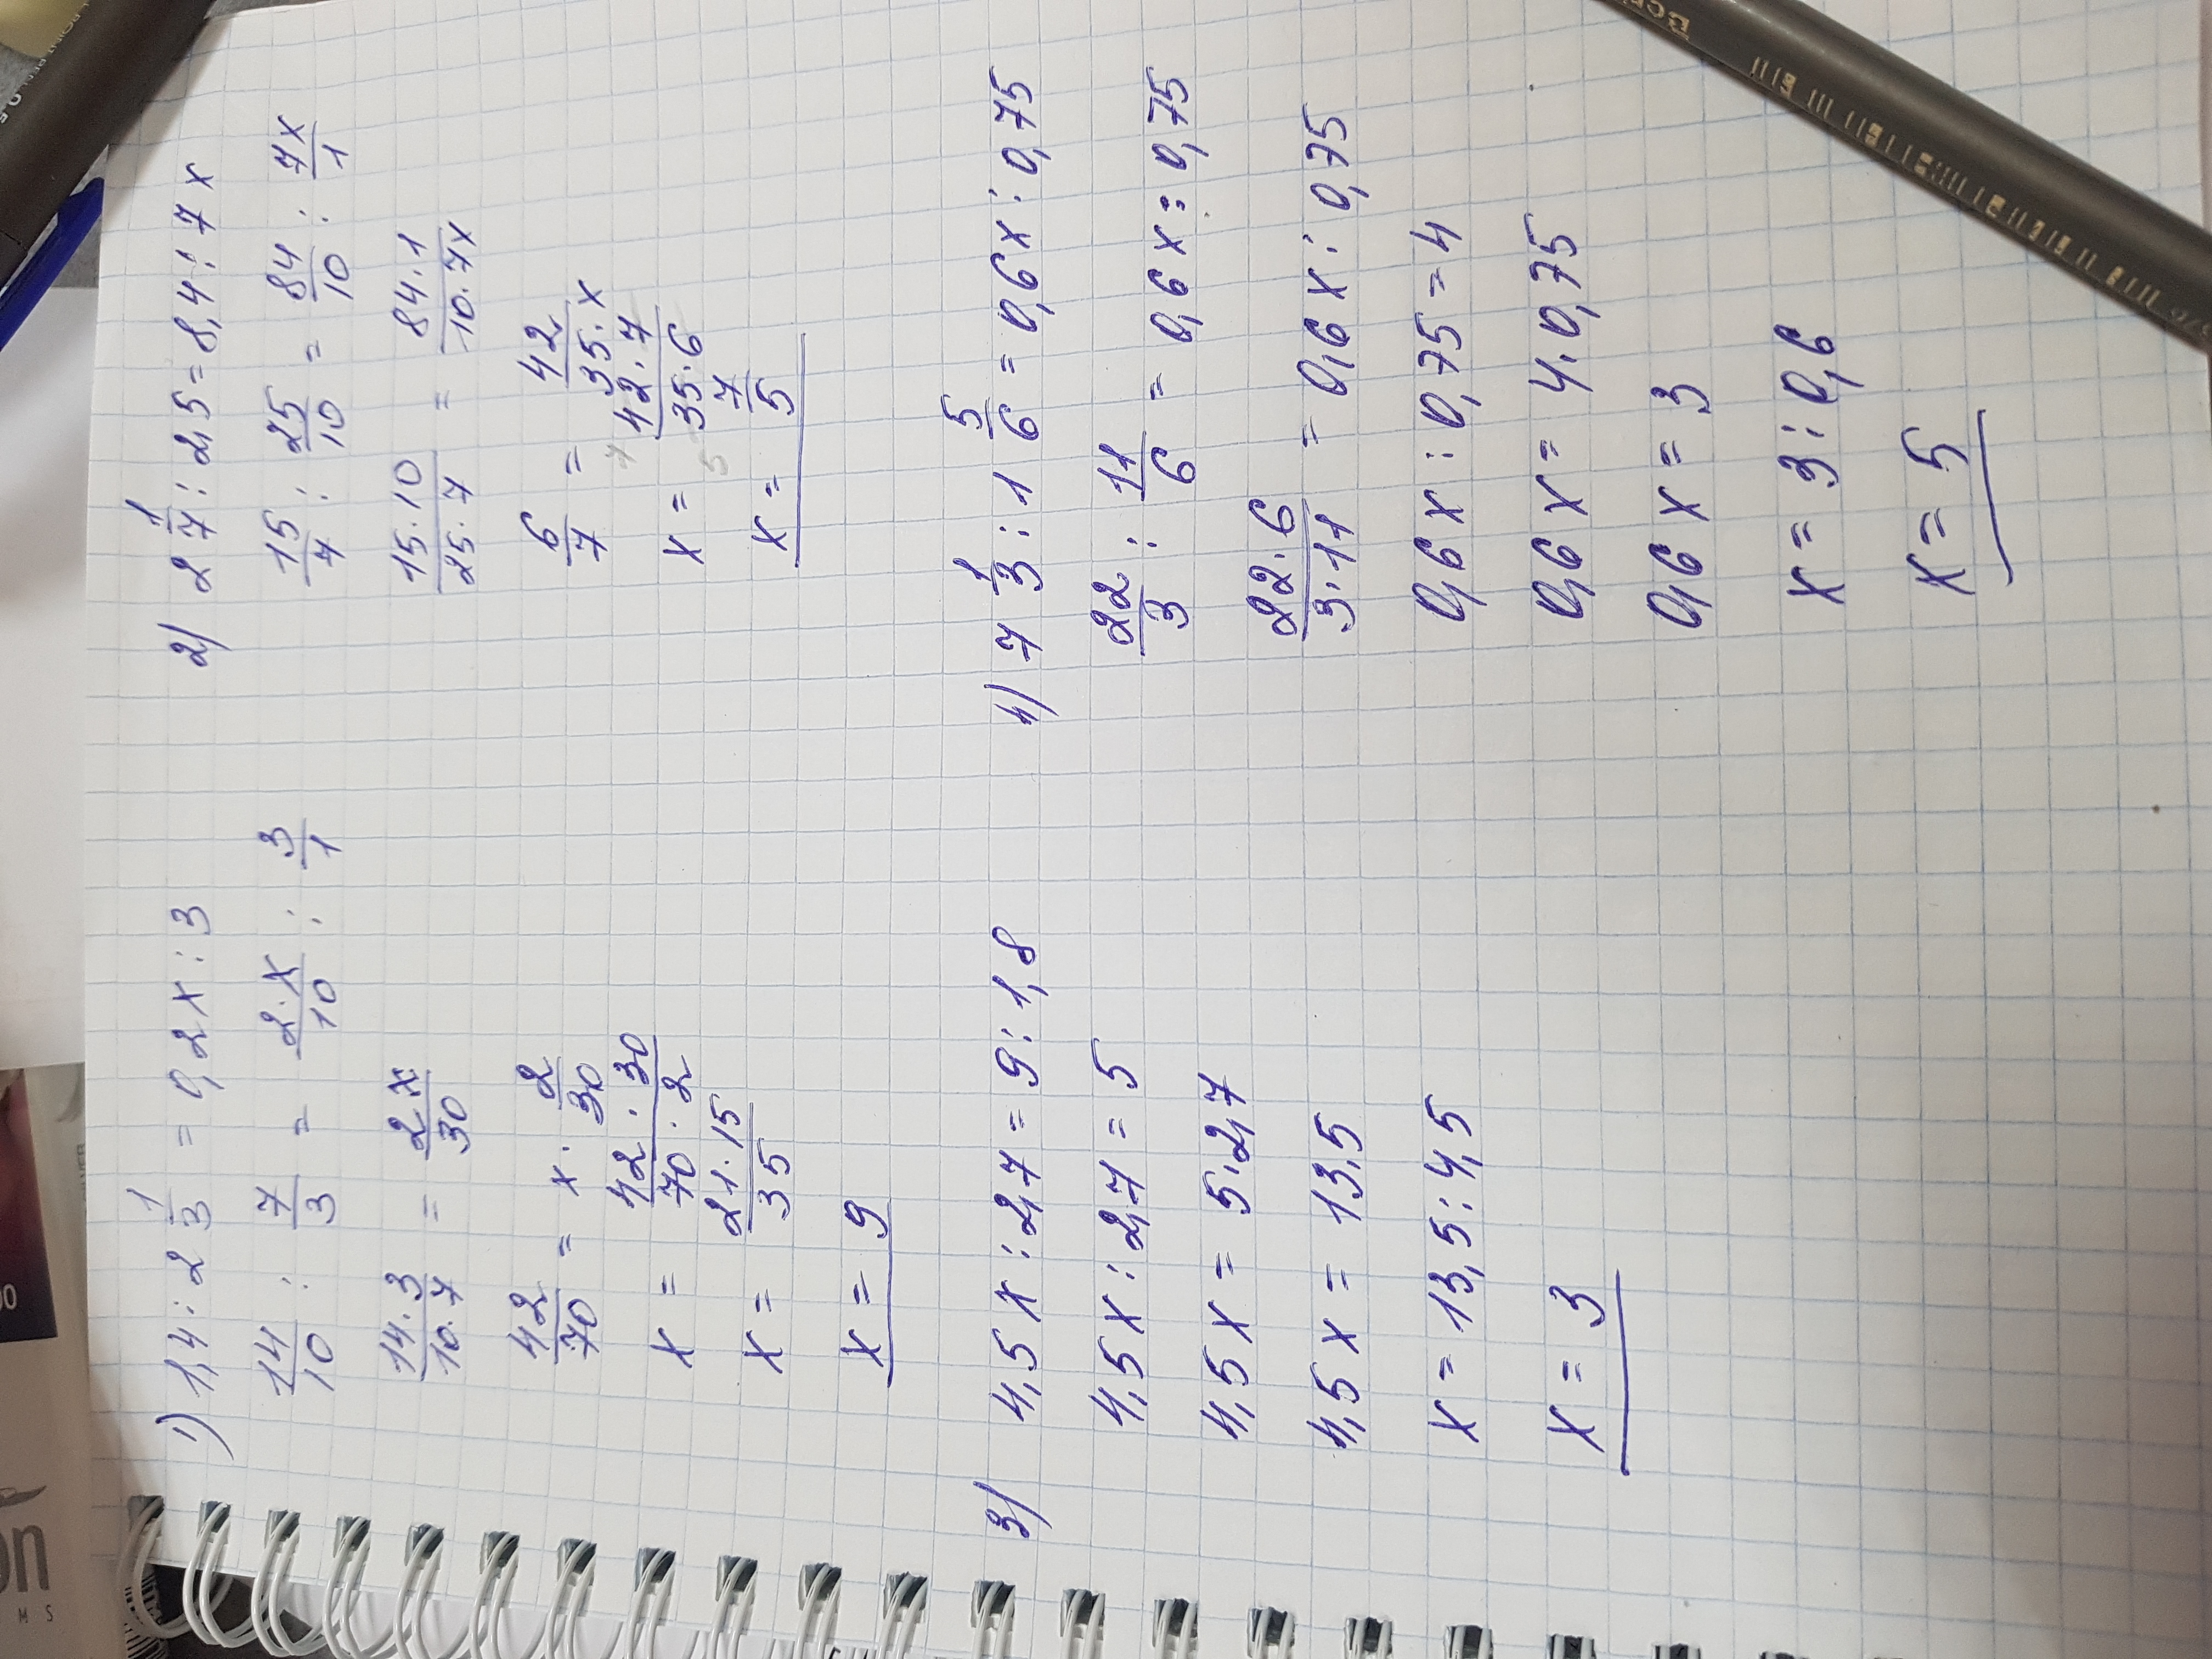 1) 1,4 : 2 1/3 = 0,2x : 3
14/10 : 7/3 = 2·x/10 : 3/1
14·3/10·7 = 2x/30
42/70 = x · 2/30
x = 42·30/70·2
x = 21·15/35
x = 9
2) 2 1/7 : 2,5 = 8,4 : 7x
15/7 : 25/10 = 84/10 : 7x/1
15·10/25·7 = 84·1/10·7x
6/7 = 42/35·x
x = 42·7/35·6
x = 7/5
3) 4,5x : 2,7 = 9 : 1,8
4,5x : 2,7 = 5
4,5x = 5·2,7
4,5x = 13,5
x = 13,5 : 4,5
x = 3
4) 7 1/3 : 1 5/6 = 0,6x : 0,75
22/3 : 11/6 = 0,6x : 0,75
22·6/3·11 = 0,6x : 0,75
0,6x : 0,75 = 4
0,6x = 4·0,75
0,6x = 3
x = 3 : 0,6
x = 5